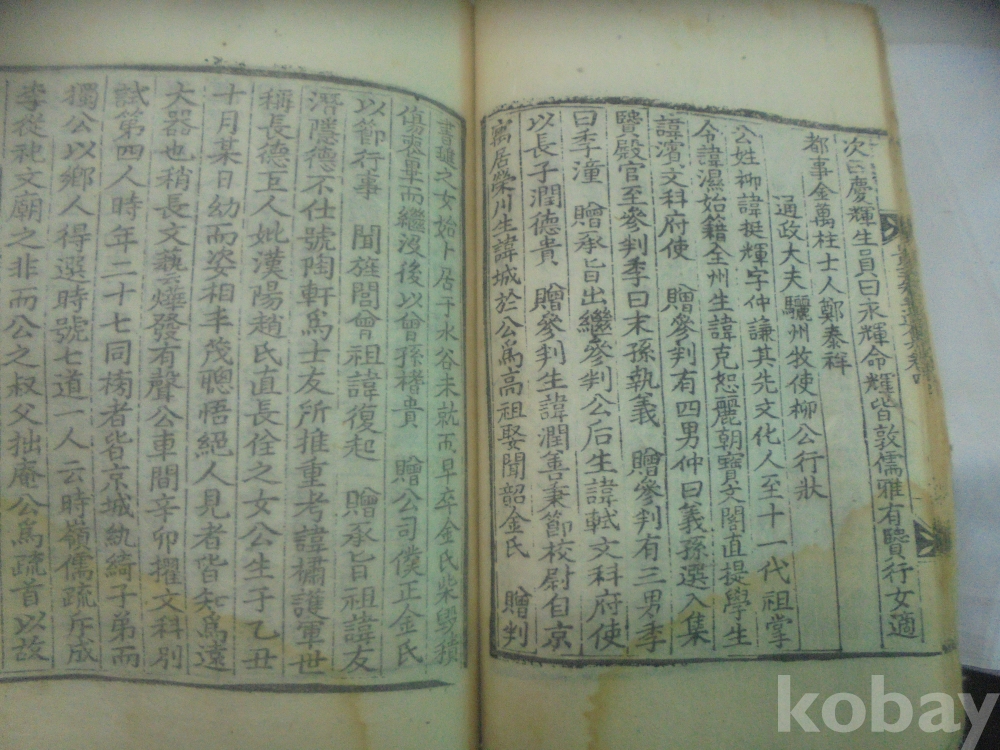 次曰慶輝生員曰永輝命輝皆敦儒雅有賢行女適
都事金萬柱士人鄭泰
通政大夫驪州牧使柳公行狀
公姓柳諱挺輝字仲謙其先文化人至十一代祖掌
令諱濕始籍全州生諱克恕麗朝寶文閣直提學生
諱濱文科府使 贈參判有四男仲曰義孫選入集
賢殿官至參判季曰末孫執義 贈參判有三男季
曰季潼 贈承旨出繼參判公后生諱軾文科府使
以長子潤德貴 贈參判生諱潤善秉節校尉自京
寓居榮川生諱城於公爲高祖娶聞韶金氏 贈判
書璡之女始卜居于水谷未就而早卒金氏柴毁積
傷喪畢而繼沒後以曾孫稽貴 贈公司僕正金氏
以節行事 聞旌閭曾祖諱復起 贈承旨祖諱友
潛隱德不仕號陶軒爲士友所推重考諱橚護軍世
稱長德巨人妣漢陽趙氏直長佺之女公生于乙丑
十月某日幼而姿相丰茂聰悟絕人見者皆知爲遠
大器也稍長文藝燁發有聲公車間辛卯擢文科別
試第四人時年二十七同榜者皆京城紈綺子弟而
獨公以鄉人得選時號七道一人云時嶺儒疏斥成
李從祀文廟之非而公之叔父拙庵公爲疏首以故
kobay